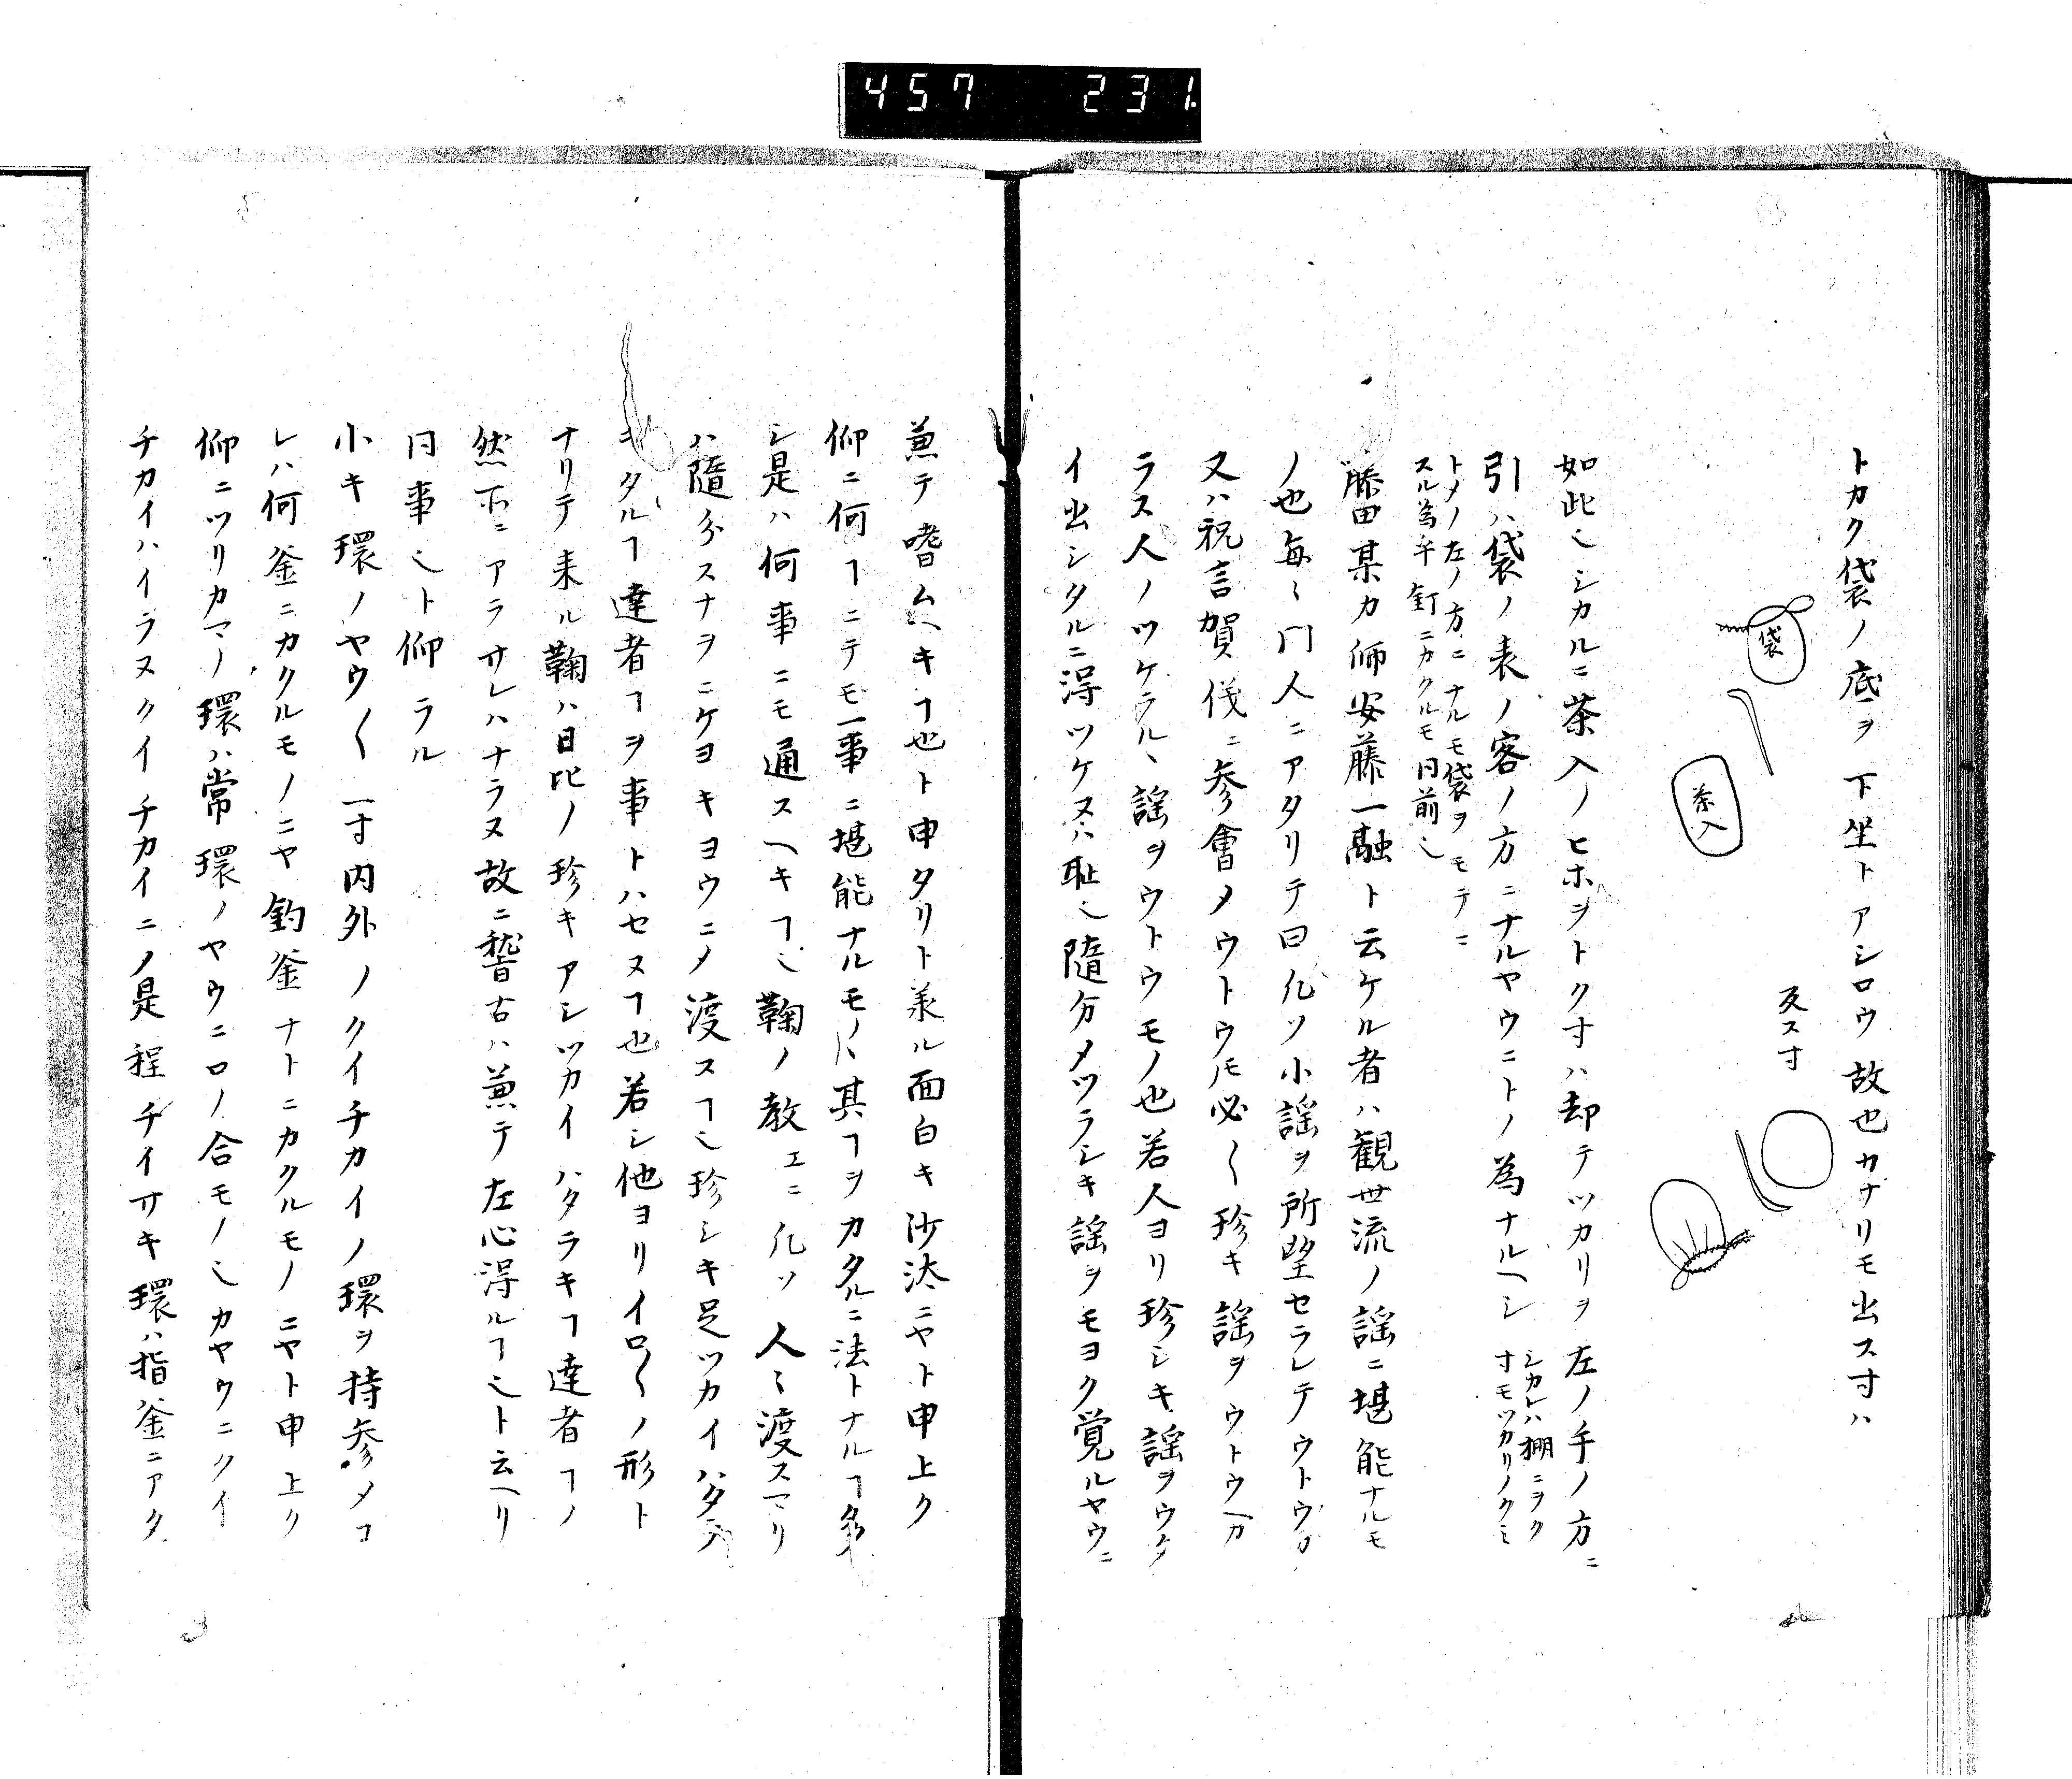 457 231.
トカク袋ノ底ヲ下坐トアシロウ故也カサリモ出ス寸ハ
袋
茶入
又ス寸
如此〻シカルニ茶入ノヒホヲトク寸ハ却テツカリヲ左ノ手ノ方ニ
引ハ袋ノ表ノ客ノ方ニナルヤウニトノ為ナルヘシ
シカレハ棚ニヲク
寸モツカリノクミ
トメノ左ノ方ニナルモ袋ヲモテニ
スル為乎釘ニカクルモ同前〻
藤田某カ師安藤一融ト云ケル者ハ観世流ノ謡ニ堪能ナルモ
ノ也毎〻門人ニアタリテ曰凡ソ小謡ヲ所望セラレテウトウカ
又ハ祝言賀儀ニ参會メウトウモ必〱珍キ謡ヲウトウヘカ
ラス人ノツケラルヽ謡ヲウトウモノ也若人ヨリ珍シキ謡ヲウタ
イ出シタルニ得ツケヌハ耻〻隨分メツラシキ謡ヲモヨク覚ルヤウニ
兼テ嗜ムヘキヿ也ト申タリト羕ル面白キ沙汰ニヤト申上ク
仰ニ何ヿニテモ一事ニ堪能ナルモノハ其ヿヲカタルニ法トナルヿ多
シ是ハ何事ニモ通スヘキヿ〻鞠ノ教エニ凡ソ人〻渡スマリ
ハ隨分スナヲニケヨキヨウニメ渡スヿ〻珍シキ足ツカイハタラ
キタルヿ達者ヿヲ事トハセヌヿ也若シ他ヨリイロ〱ノ形ト
ナリテ来ル鞠ハ日比ノ珍キアシツカイハタラキヿ達者ヿノ
然所ニアラサレハナラヌ故ニ稽古ハ兼テ左心得ルヿ〻ト云ヘリ
同事〻ト仰ラル
小キ環ノヤウ〱一寸内外ノクイチカイノ環ヲ持参メコ
レハ何釜ニカクルモノニヤ釣釜ナトニカクルモノニヤト申上ク
仰ニツリカマノ環ハ常環ノヤウニロノ合モノ〻カヤウニクイ
チカイハイラヌクイチカイニノ是程チイサキ環ハ指釜ニアタ